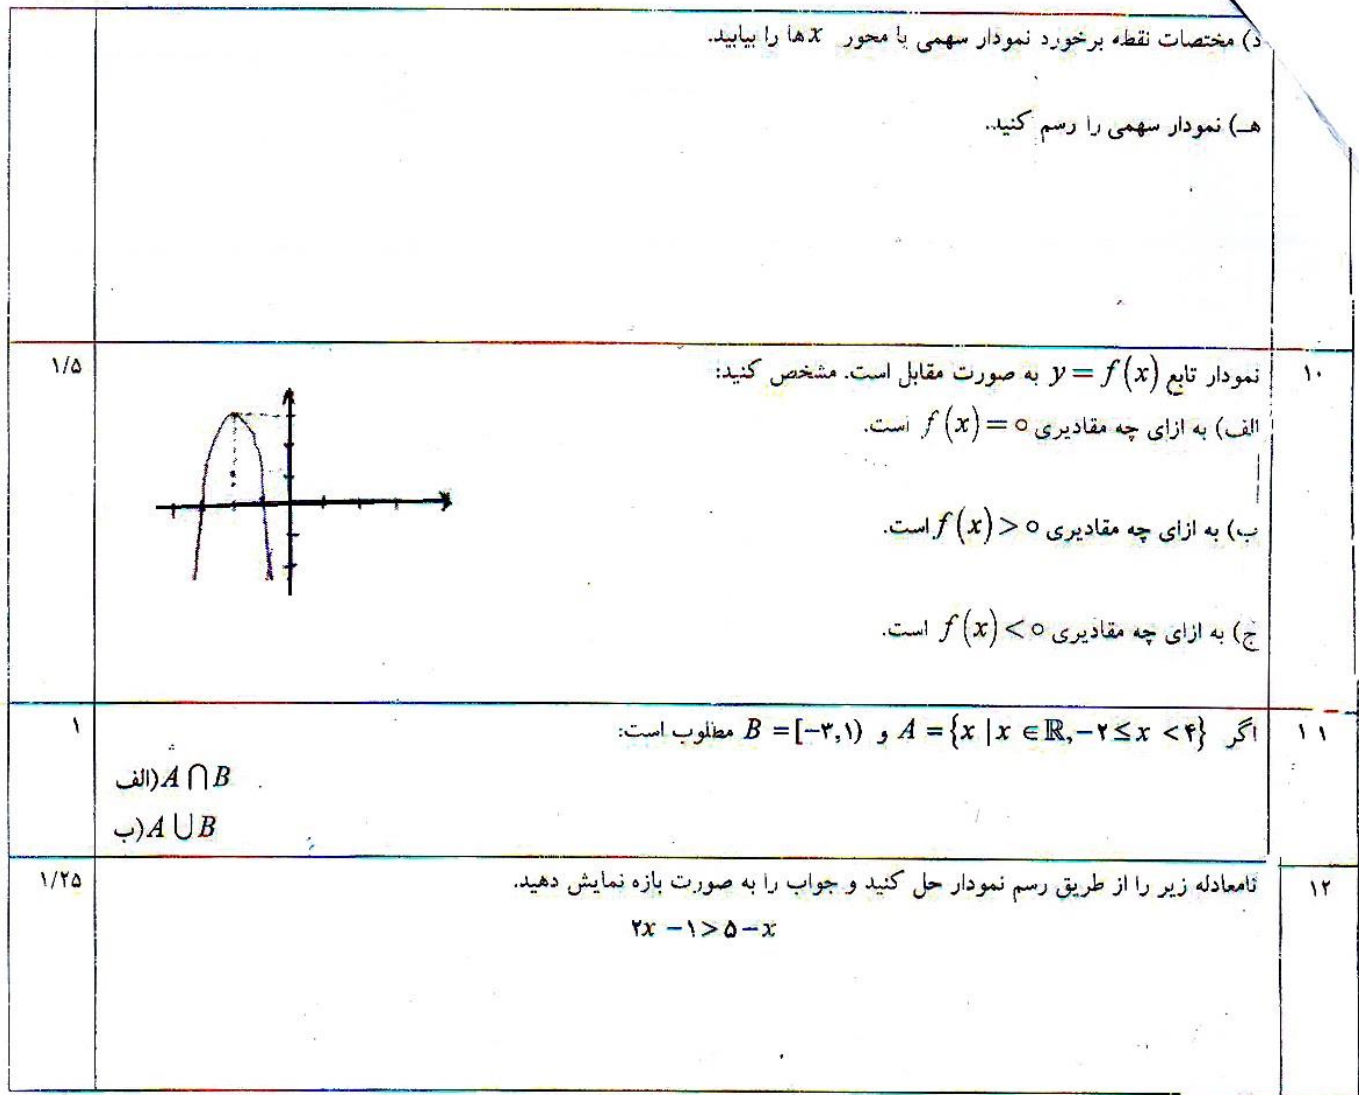 د) مختصات نقطه برخورد نمودار سهمی با محور x ها را بیابید.
هـ) نمودار سهمی را رسم کنید.
۱۰ نمودار تابع y = f(x) به صورت مقابل است. مشخص کنید: ۱/۵
الف) به ازای چه مقادیری f(x) = ۰ است.
ب) به ازای چه مقادیری f(x) > ۰ است.
ج) به ازای چه مقادیری f(x) < ۰ است.
۱۱ اگر A = {x | x ∈ ℝ, −۲ ≤ x < ۴} و B = [−۳,۱) مطلوب است: ۱
الف) A ∩ B
ب) A ∪ B
۱۲ نامعادله زیر را از طریق رسم نمودار حل کنید و جواب را به صورت بازه نمایش دهید. ۱/۲۵
۲x − ۱ > ۵ − x